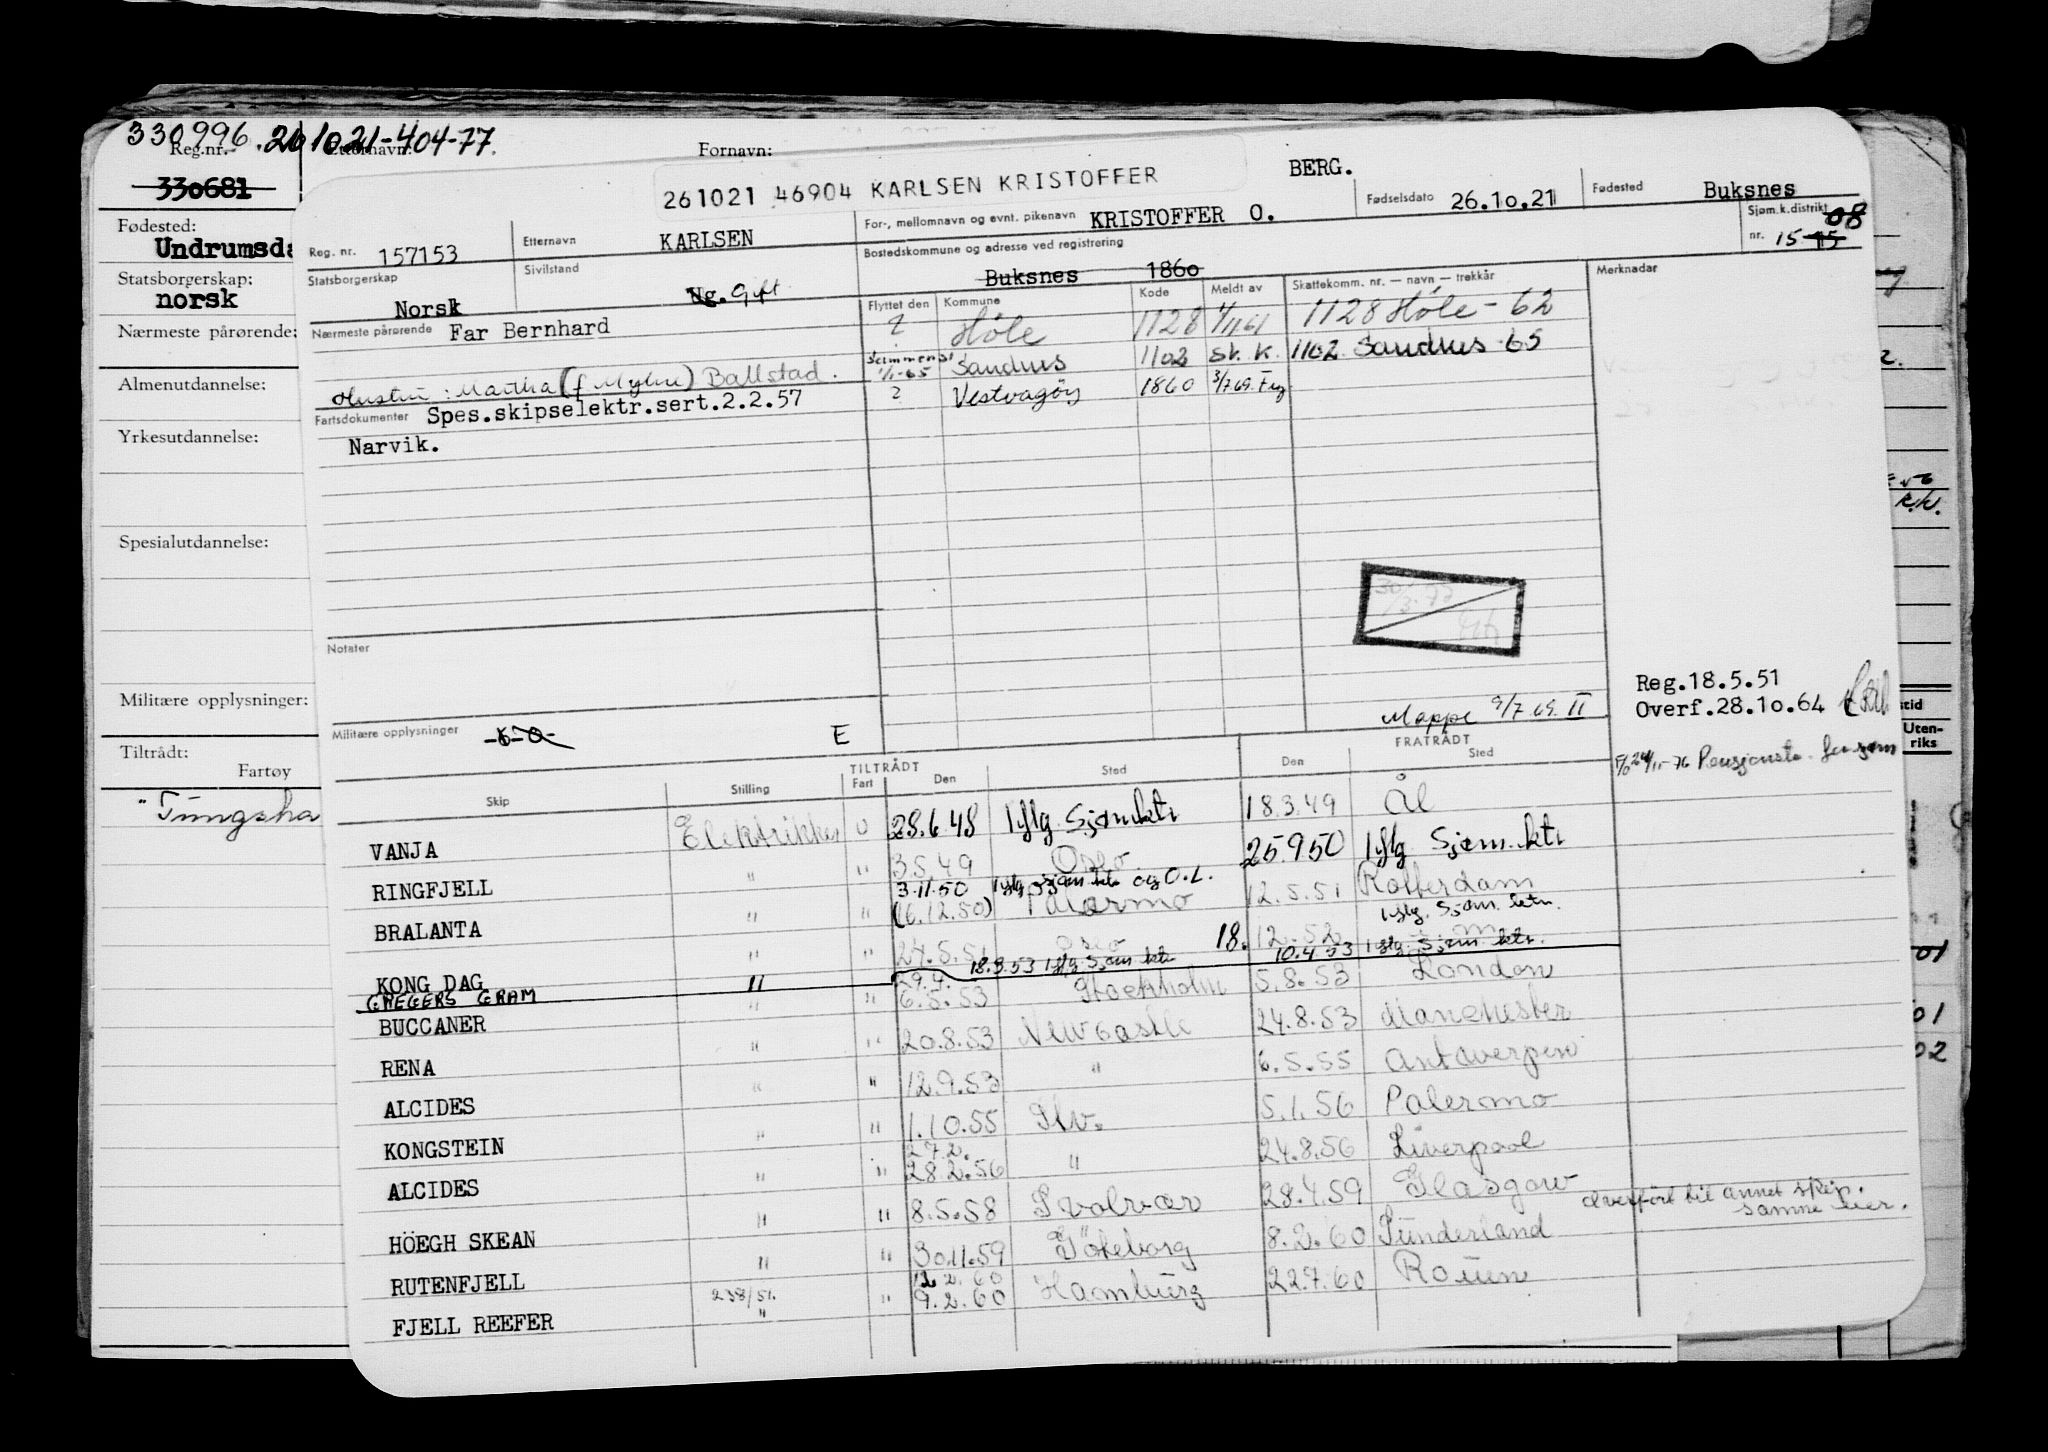 330996. 261021-404-77.
Reg.nr. Etternavn: Fornavn:
330681
Fødested:
Undrumsda
Statsborgerskap:
norsk
Nærmeste pårørende:
Almenutdannelse:
Yrkesutdannelse:
Spesialutdannelse:
Militære opplysninger:
Tiltrådt:
Fartøy
"Tungsha
261021 46904 KARLSEN KRISTOFFER BERG.
Reg. nr. 157153 Etternavn KARLSEN For-, mellomnavn og evnt. pikenavn KRISTOFFER O. Fødselsdato 26.10.21 Fødested Buksnes
Statsborgerskap Norsk Sivilstand Ug. Gift Bostedskommune og adresse ved registrering Buksnes 1860 Sjøm.k.distrikt nr. 15 15 08
Nærmeste pårørende Far Bernhard
Hustru: Martha (f Myhre) Ballstad.
Flyttet den Kommune Kode Meldt av Skattekomm. nr. — navn — trekkår Merknadar
? Höle 1128 1/11 61 1128 Höle - 62
1/1-65 Sandnes 1102 Sk. K. 1102 Sandnes 65
? Vestvagöy 1860 3/7 69.
Fartsdokumenter Spes.skipselektr.sert.2.2.57
Narvik.
Notater
Reg.18.5.51
Overf.28.10.64
Mappe 9/7 69. II
Militære opplysninger E
TILTRÅDT FRATRÅDT
Skip Stilling Fart Den Sted Den Sted
VANJA Elektriker U 28.6.48 Iflg Sjømktr 18.3.49 Ål
RINGFJELL " " 3.5.49 Oslo 25.9.50 Iflg Sjøm.ktr
3.11.50 Iflg Sjøm ktr og O.L.
BRALANTA " " (6.12.50) Palermo 12.5.51 Rotterdam
Iflg. Sjøm. ktr.
KONG DAG " " 24.5.51 Oslo 18.12.52
GREGERS GRAM " 18.3.53 Iflg Sjøm ktr 10.4.53 Iflg. Sjøm. ktr.
29.4.
BUCCANER " " 6.5.53 Stockholm 5.8.53 London
RENA " " 20.8.53 Newcastle 24.8.53 Manchester
ALCIDES " " 12.9.53 " 6.5.55 Antwerpen
KONGSTEIN " " 1.10.55 Slv. 5.1.56 Palermo
27.2.
ALCIDES " " 28.2.56 " 24.8.56 Liverpool
HÖEGH SKEAN " " 8.5.58 Svolvær 28.4.59 Glasgow
overført til annet skip. samme eier.
RUTENFJELL " " 30.11.59 Göteborg 8.2.60 Sunderland
12.2.60
FJELL REEFER 238/51. " " 9.2.60 Hamburg 22.7.60 Rouen
Uten-
riks
01
01
02